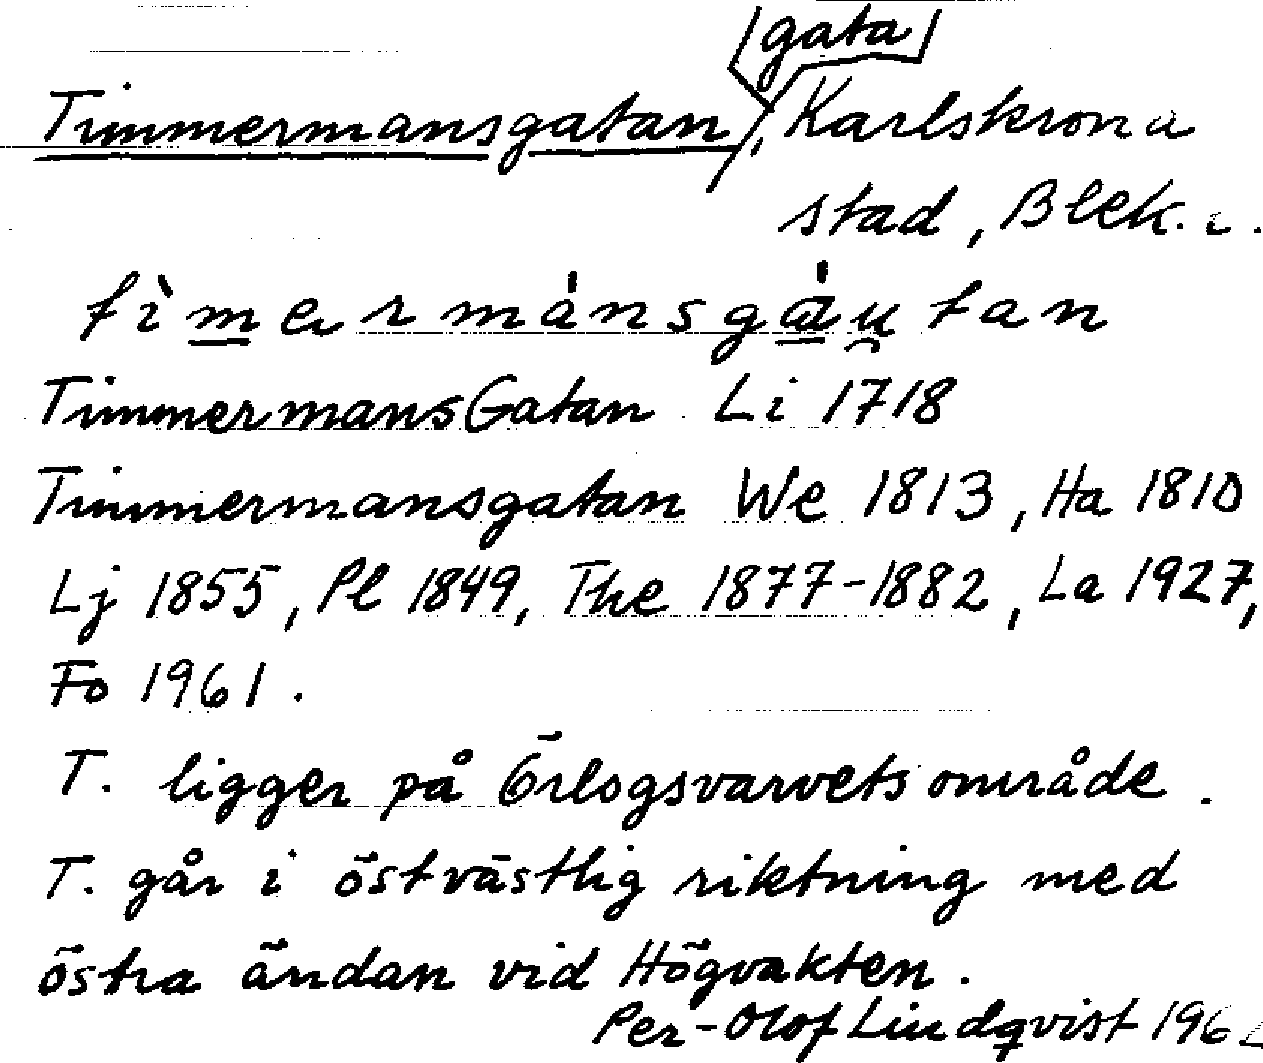 gata
Timmermansgatan, Karlskrona
stad, Blek. l.
tìmermánsgáutan
TimmermansGatan Li 1718
Timmermansgatan We 1813, Ha 1810
Lj 1855, Pl 1849, The 1877-1882, La 1927,
Fo 1961.
T. ligger på Örlogsvarvets område.
T. går i östvästlig riktning med
östra ändan vid Högvakten.
Per-Olof Lindqvist